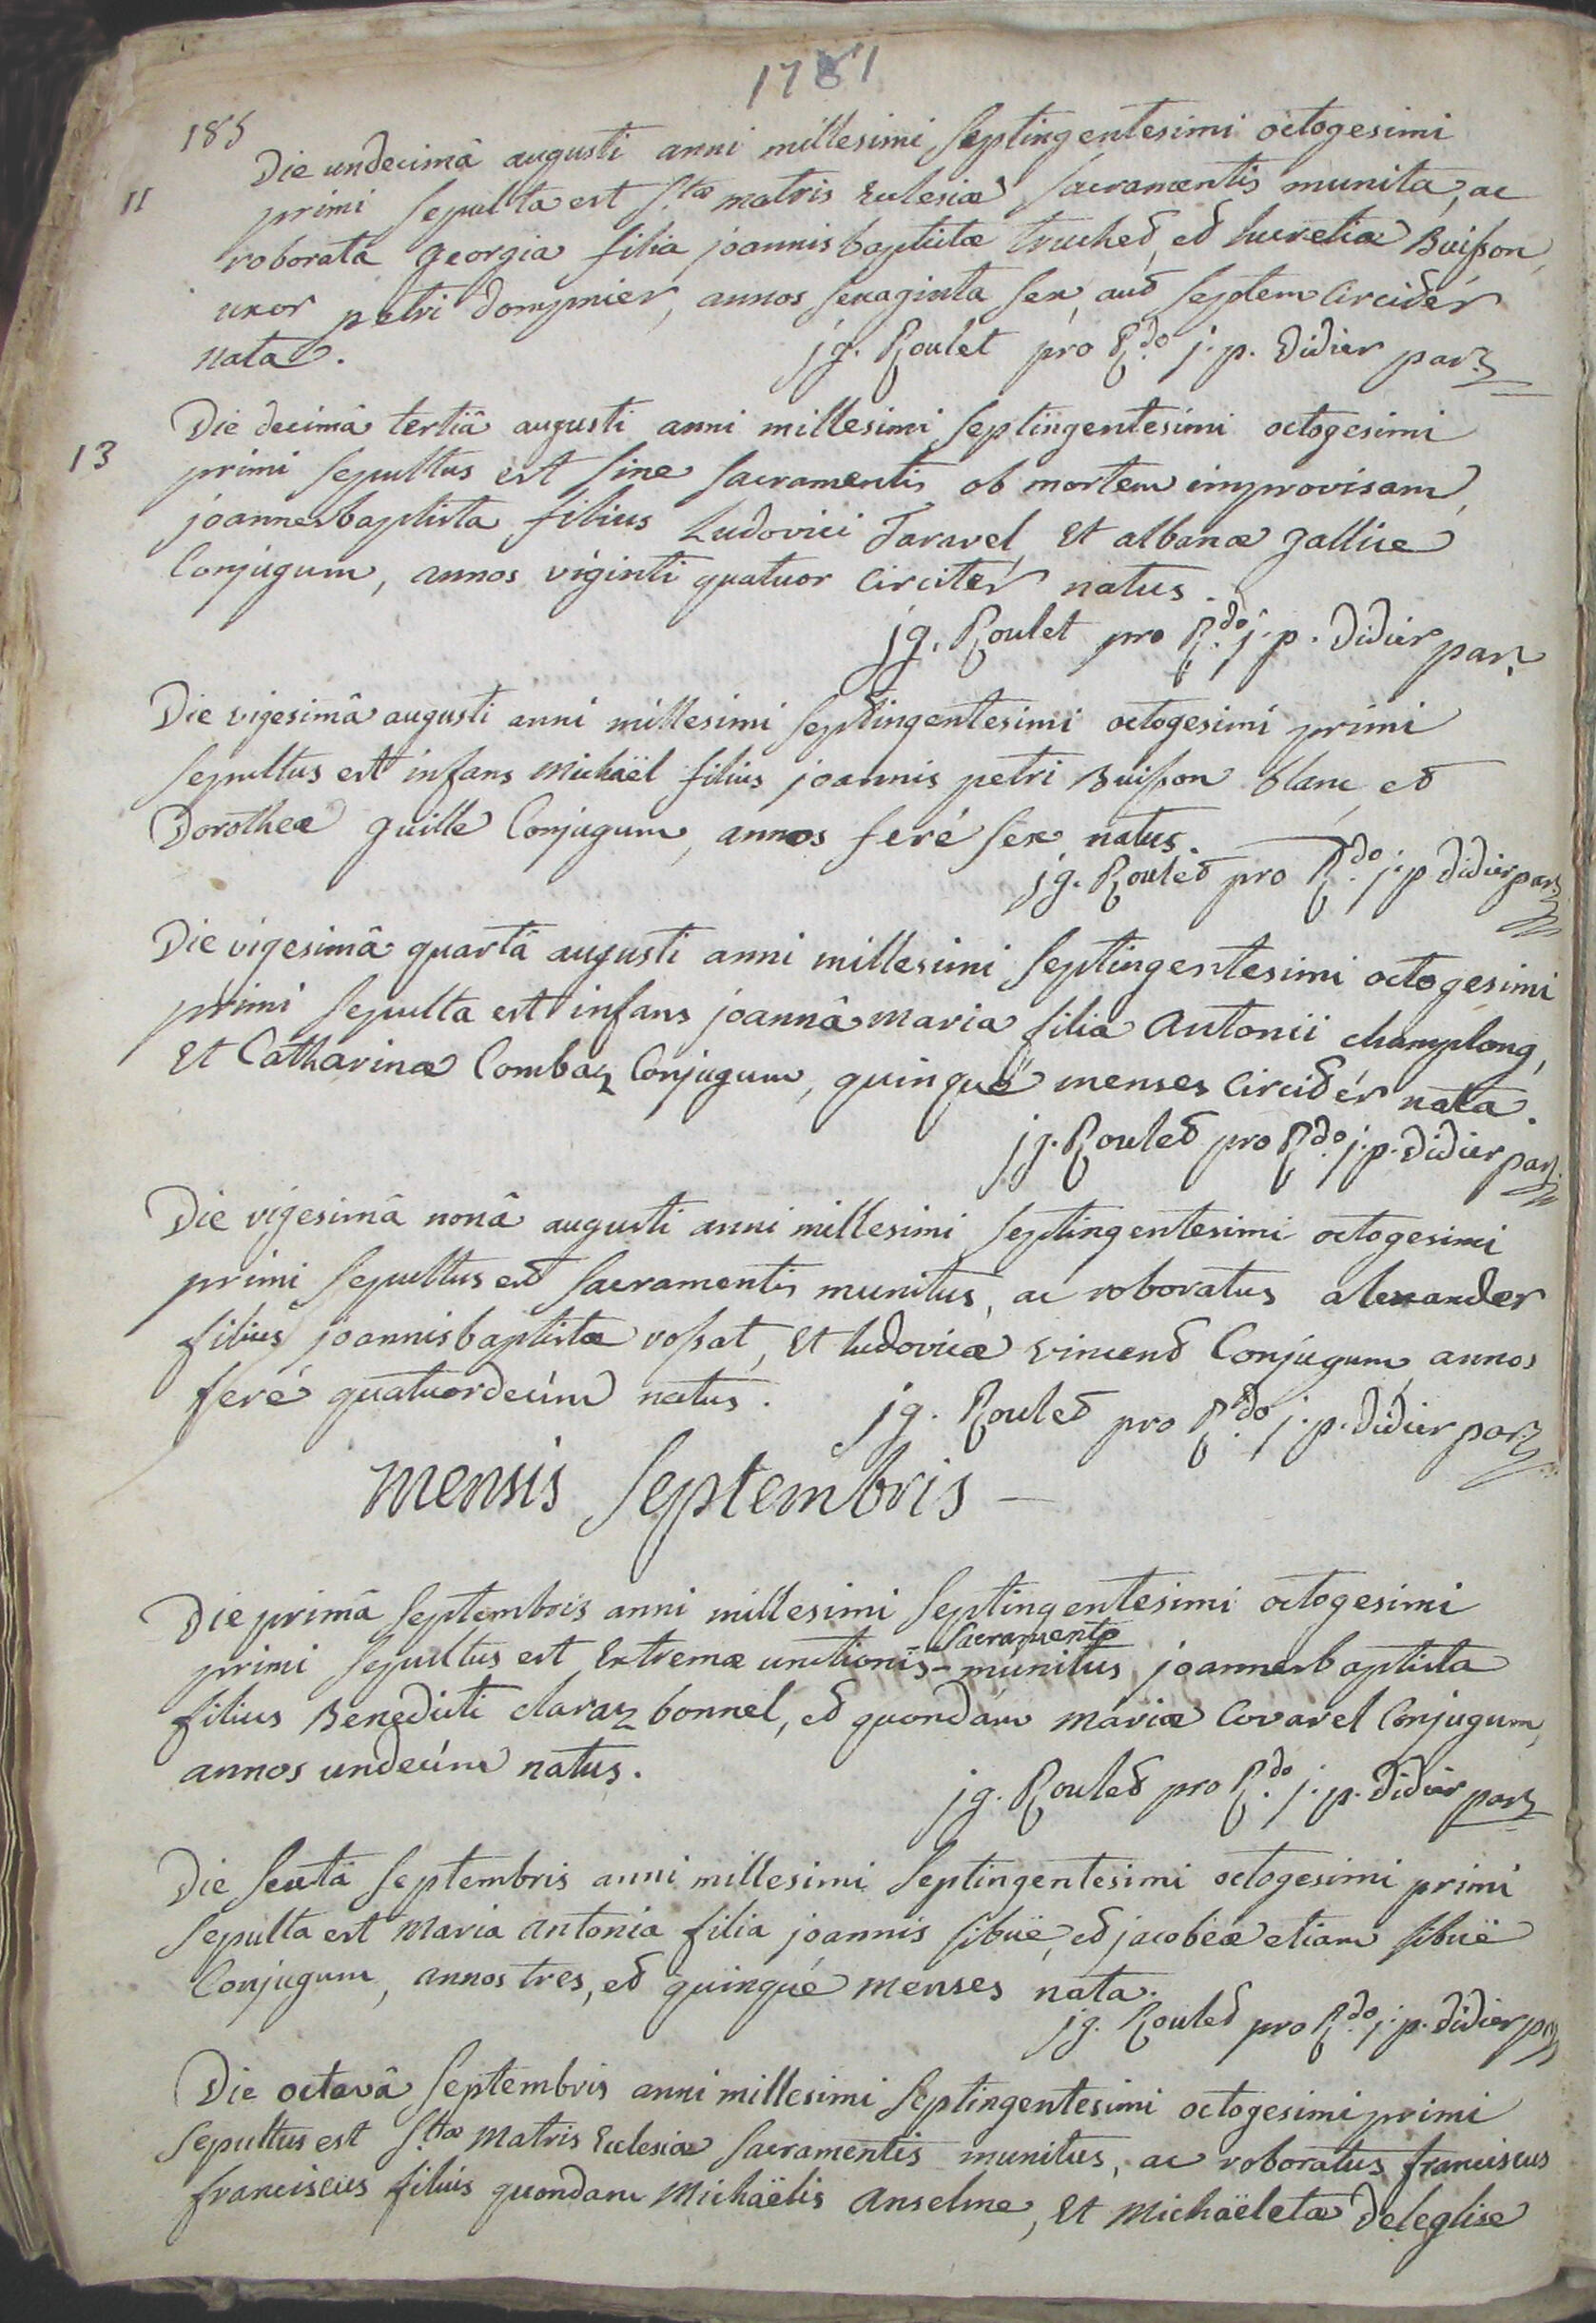 1781
185
Die undecimâ augusti anni millesimi septingentesimi octogesimi
11
primi sepulta est Stæ matris Ecclesiæ sacramentis munita, ac
roborata georgia filia joannisbaptistæ truchet, et lucretiæ Buisson,
uxor petri dompnier, annos sexaginta sex, aut septem circitér
nata.
jg. Roulet pro Rdo j. p. Didier par
Die decimâ tertiâ augusti anni millesimi septingentesimi octogesimi
13
primi sepultus est sine sacramentis ob mortem improvisam,
joannesbaptista filius Ludovici Taravel, Et albanæ gallice
Conjugum, annos viginti quatuor circitér natus.
jg. Roulet pro Rdo j. p. Didier par
Die vigesimâ augusti anni millesimi septingentesimi octogesimi primi
sepultus est infans Michaël filius joannis petri Buisson blanc, et
Dorotheæ guille Conjugum, annos feré sex natus.
jg. Roulet pro Rdo j. p. Didier par
Die vigesimâ quartâ augusti anni millesimi septingentesimi octogesimi
primi sepulta est infans joannâ maria filia Antonii champlong,
Et Catharinæ Combaz Conjugum, quinqué menses circitér nata.
jg. Roulet pro Rdo j. p. Didier par
Die vigesimâ nonâ augusti anni millesimi septingentesimi octogesimi
primi sepultus est sacramentis munitus, ac roboratus alexander
filius joannisbaptistæ rossat, Et ludovicæ vincend Conjugum, annos
feré quatuordecim natus.
jg. Roulet pro Rdo j. p. Didier par
mensis septembris —
Die primâ septembris anni millesimi septingentesimi octogesimi
sacramento
primi sepultus est Extremæ unctionis - munitus joannesbaptista
filius Benedicti claraz bonnel, et quondám mariæ Covarel Conjugum,
annos undecim natus.
jg. Roulet pro Rdo j. p. Didier par
Die sextâ septembris anni millesimi septingentesimi octogesimi primi
sepulta est Maria Antonia filia joannis sibuë, et jacobeæ etiam sibuë
Conjugum, annos tres, et quinqué menses nata.
jg. Roulet pro Rdo j. p. Didier par
Die octavâ septembris anni millesimi septingentesimi octogesimi primi
sepultus est Stæ Matris Ecclesiæ sacramentis munitus, ac roboratus franciscus
franciscus filius quondam Michaëlis Anselme, Et Michaëletæ Deleglise